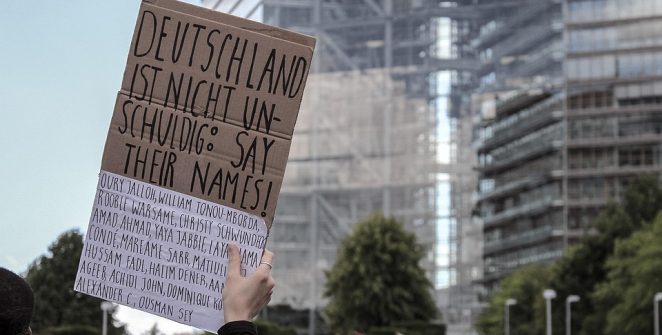 DEUTSCHLAND
IST NICHT UN-
SCHULDIG: SAY
THEIR NAMES!
OURY JALLOH, WILLIAM TONOU-MBOBDA,
ROOBLE WARSAME, CHRISTY SCHWUNDECK
AMAD AHMAD, YAYA JABBIE, LAYA
CONDÉ, MARIEME SARR,
HUSSAM FADL, HALIM DENER,
AGEER, ACHIDI JOHN, DOMINIQUE
ALEXANDER C, OUSMAN SEY